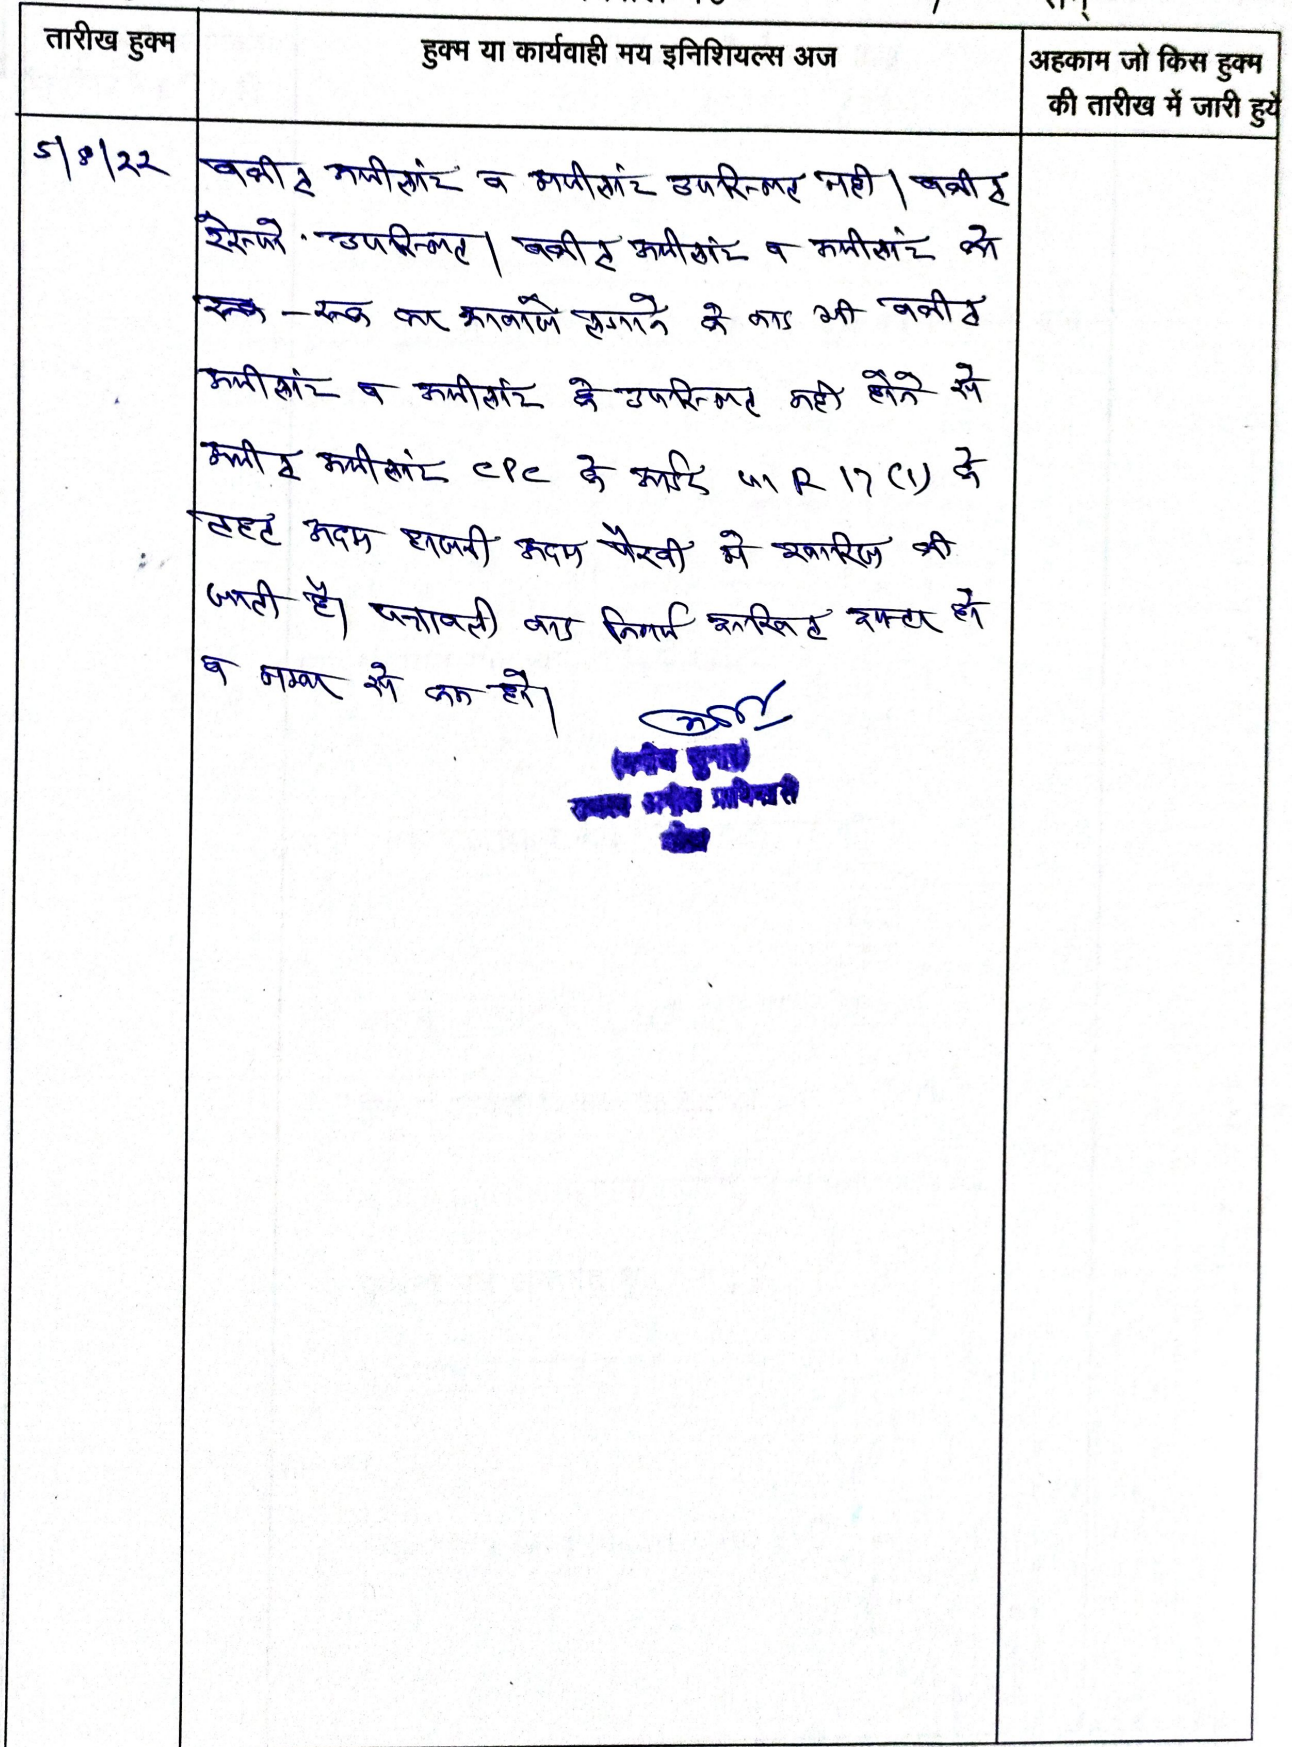 तारीख हुक्म
हुक्म या कार्यवाही मय इनिशियल्स अज
अहकाम जो किस हुक्म
की तारीख में जारी हुये
5/8/22
वकील अपीलांट व अपीलांट उपस्थित नही। वकील
रेस्पो. उपस्थित। वकील अपीलांट व अपीलांट को
रूक-रूक कर आवाजे लगाने के बाद भी वकील
अपीलांट व अपीलांट के उपस्थित नही होने से
अपील अपीलांट CPC के आर्डर 41 R 17 (1) के
तहत अदम हाजरी अदम पैरवी में खारिज की
जाती है। पत्रावली बाद निर्णय दाखिल दफ्तर हो
व नम्बर से कम हो।
अपील प्राधिकारी